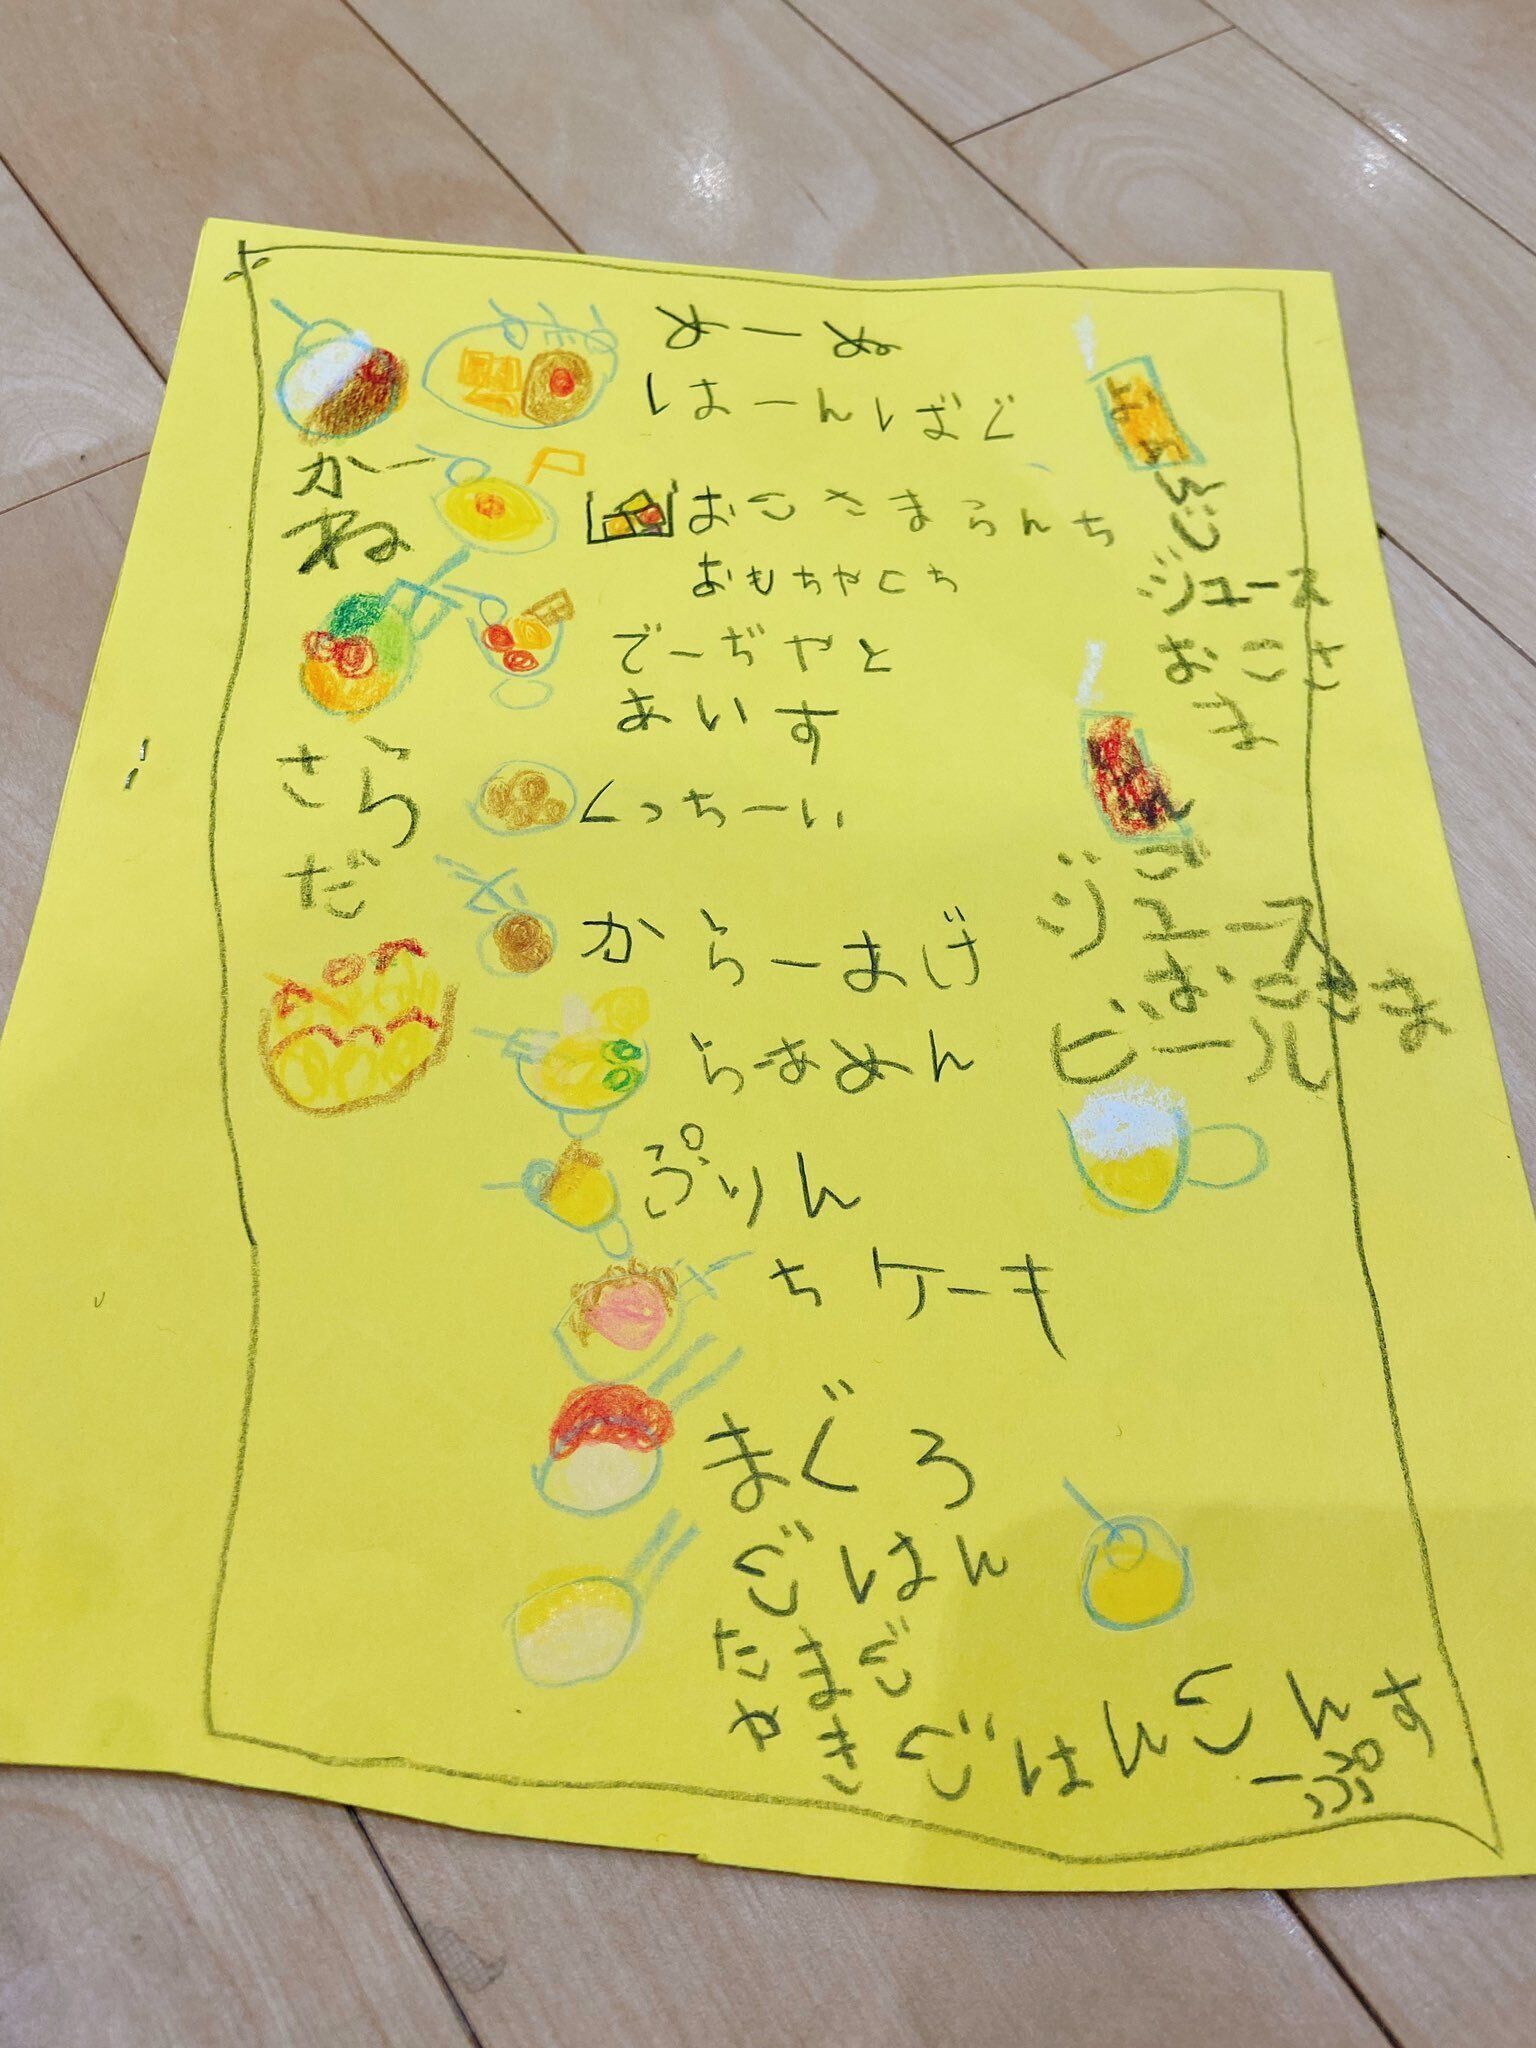 めーぬ
はーんばぐ
おこさまらんち
おもちゃくち
でーぢやと
あいす
くっちーい
からーあげ
らーあめん
ぷりん
ちケーキ
まぐろ
ごはん
たまご
やき
ごはんこんす
ーぷ
かー
ね
さら
だ
んじ
ジュース
おこさ
ま
んご
ジュース
おこさま
ビール